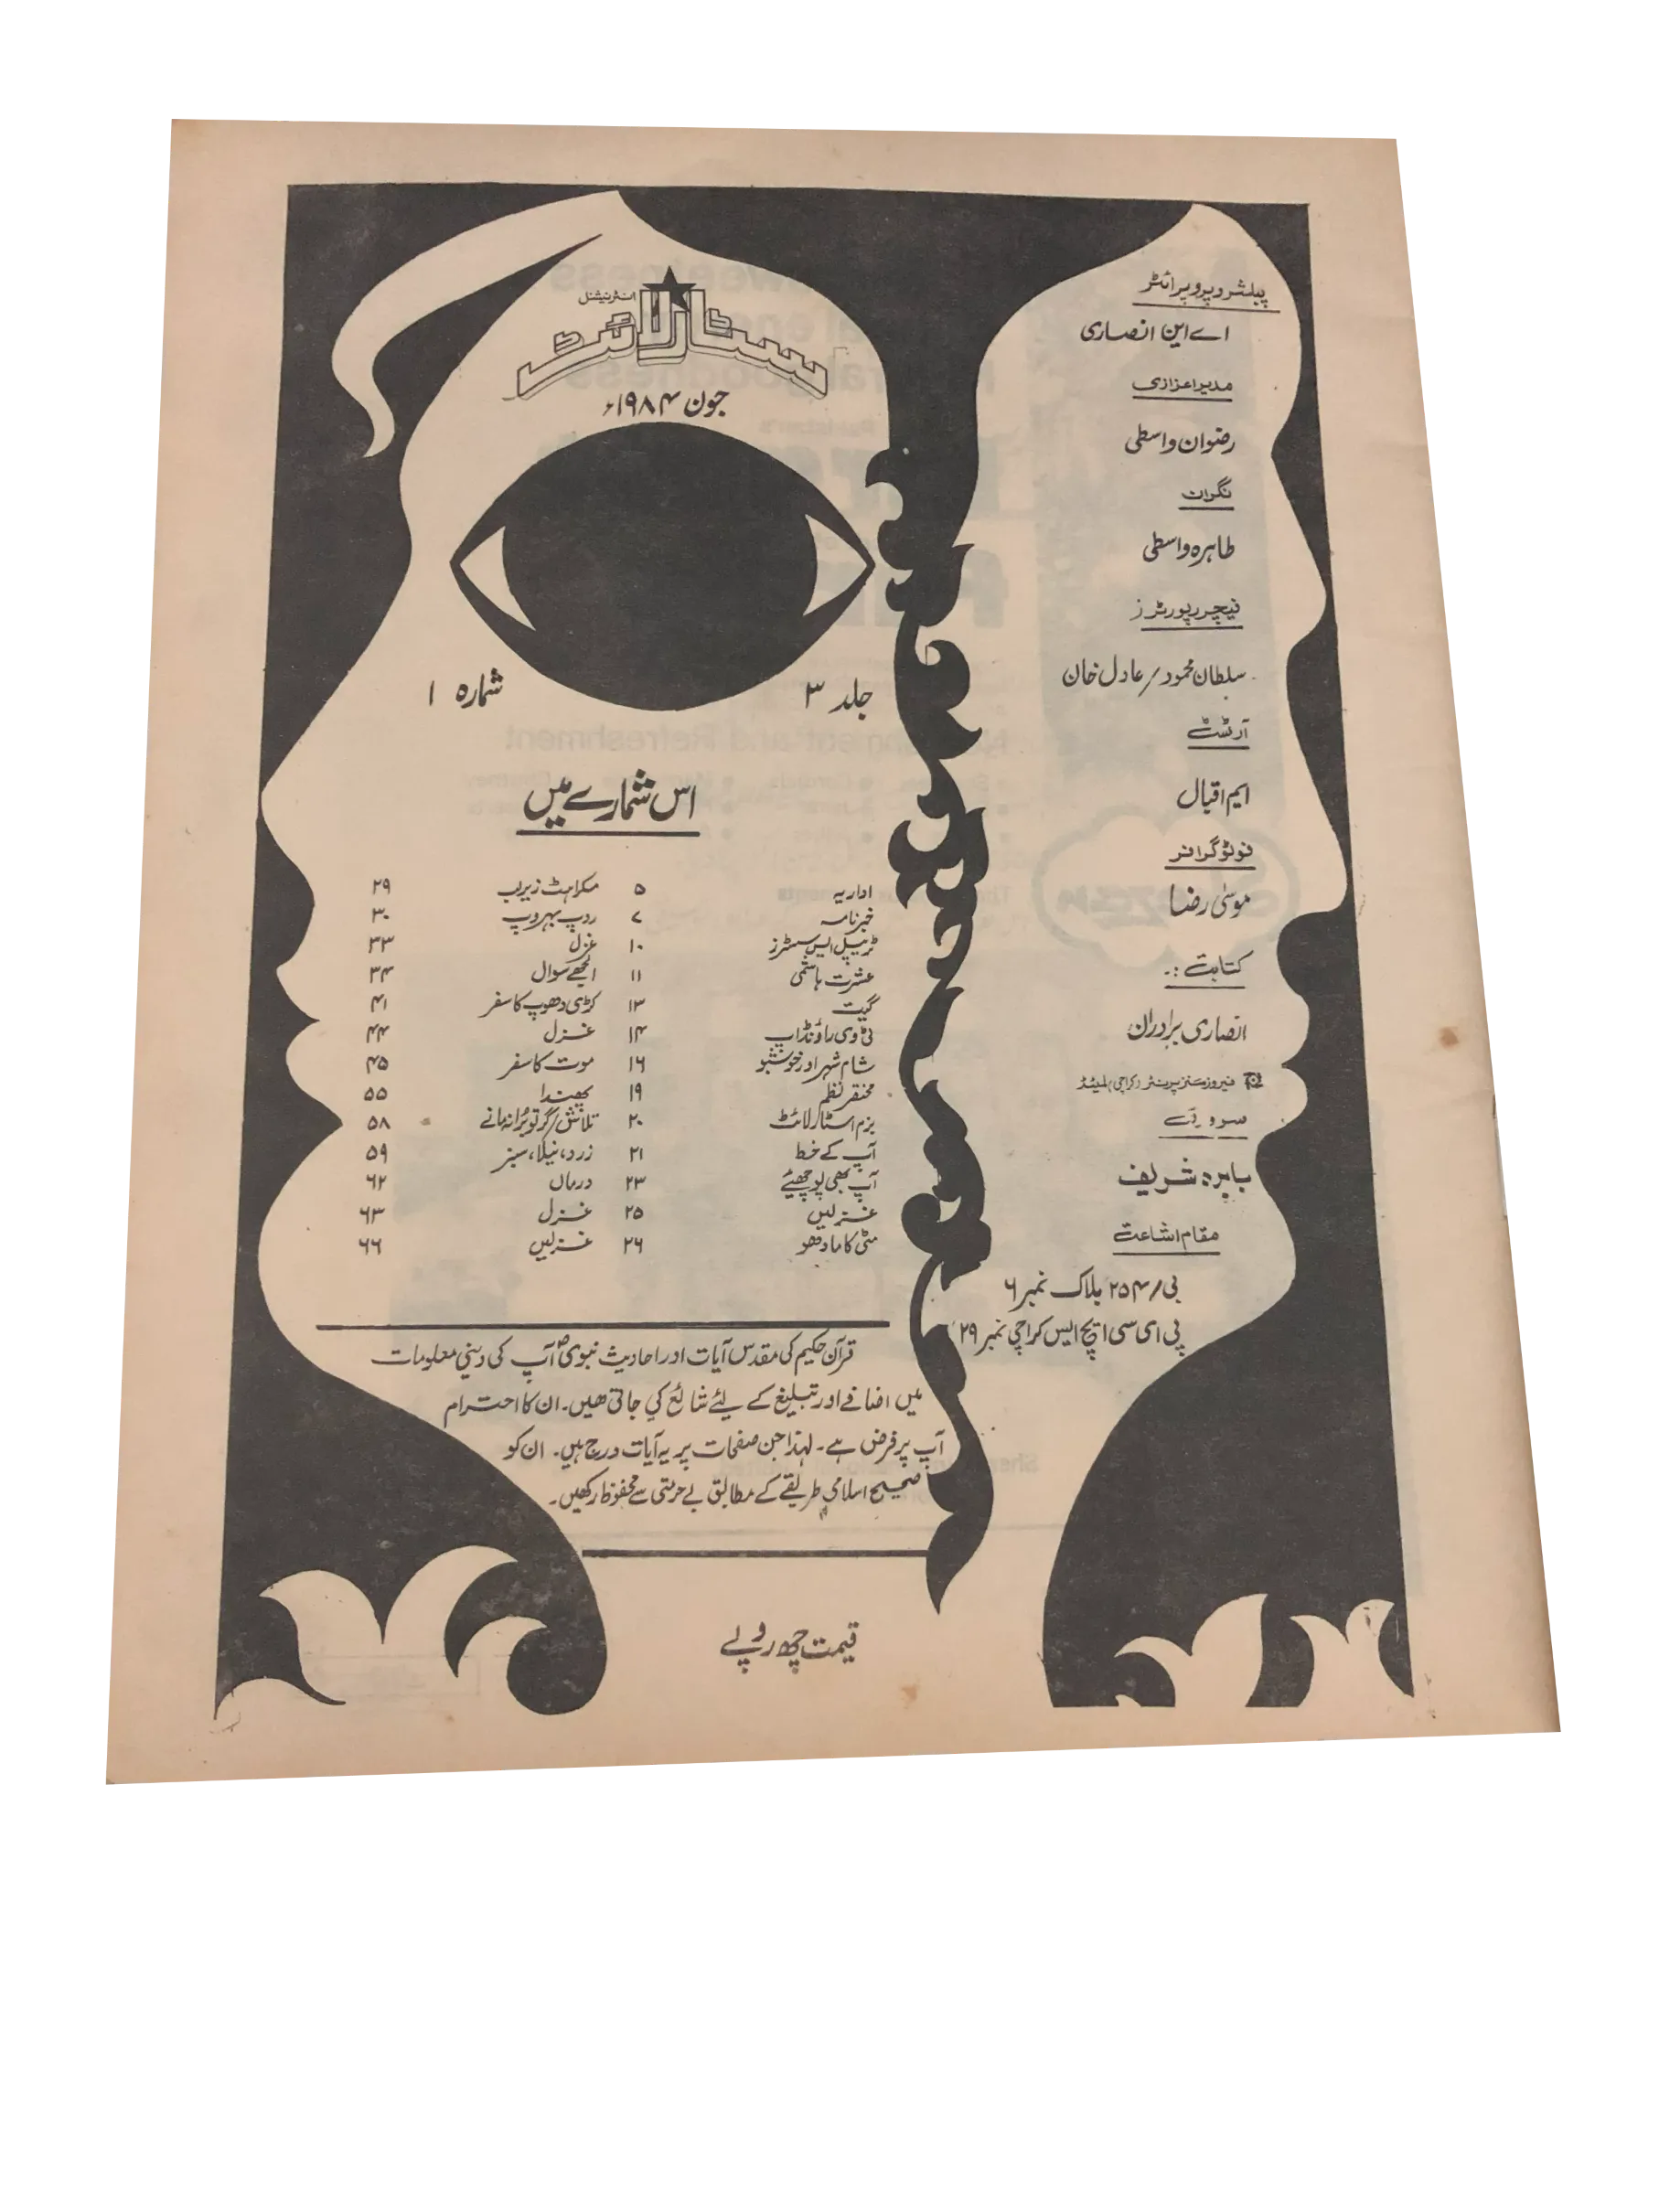 پبلشر و پروپرائٹر
اے این انصاری
مدیر اعزازی
رضوان واسطی
نگراں
طاہرہ واسطی
فیچر رپورٹرز
سلطان محمود / عادل خان
آرٹسٹ
ایم اقبال
فوٹو گرافر
موسیٰ رضا
کتابت :۔
انصاری برادران
فیروز سنز پرینٹر (کراچی) لمیٹڈ
سرورق
بابرہ شریف
مقام اشاعت
بی/۲۵۴ بلاک نمبر ۶
پی ای سی ایچ ایس کراچی نمبر ۲۹
انٹرنیشنل
سٹار لائٹ
جون ۱۹۸۴ء
جلد ۳ شمارہ ۱
اس شمارے میں
اداریہ ۵ مسکراہٹ زیرلب ۲۹
خبرنامہ ۷ روپ بہروپ ۳۰
ٹریپل ایس سسٹرز ۱۰ غزل ۳۳
عشرت ہاشمی ۱۱ الجھے سوال ۳۴
گیت ۱۳ کڑی دھوپ کا سفر ۴۱
ٹی وی راؤنڈ اپ ۱۴ غزل ۴۴
شام شہر اور خوشبو ۱۶ موت کا سفر ۴۵
مختصر نظم ۱۹ پھندا ۵۵
بزم اسٹار لائٹ ۲۰ تلاش/گر تو برا نہ مانے ۵۸
آپ کے خط ۲۱ زرد، نیلا، سبز ۵۹
آپ بھی پوچھیئے ۲۳ درماں ۶۲
غزلیں ۲۵ غزل ۶۳
مٹی کا مادھو ۲۶ غزلیں ۶۶
قرآن حکیم کی مقدس آیات اور احادیث نبوی آپ کی دینی معلومات
میں اضافے اور تبلیغ کے لئے شائع کی جاتی ہیں۔ ان کا احترام
آپ پر فرض ہے۔ لہذا جن صفحات پر یہ آیات درج ہیں۔ ان کو
صحیح اسلامی طریقے کے مطابق بے حرمتی سے محفوظ رکھیں۔
قیمت چھ روپے